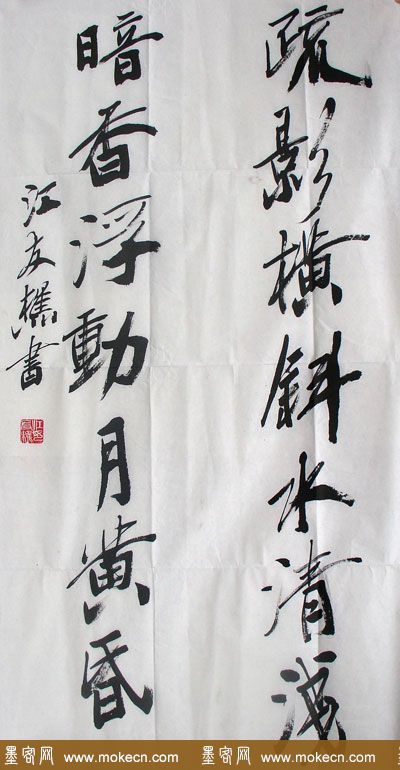 疏影橫斜水清淺
暗香浮動月黄昏
江友樵書
墨客网 www.mokecn.com 墨客网 www.mokecn.com